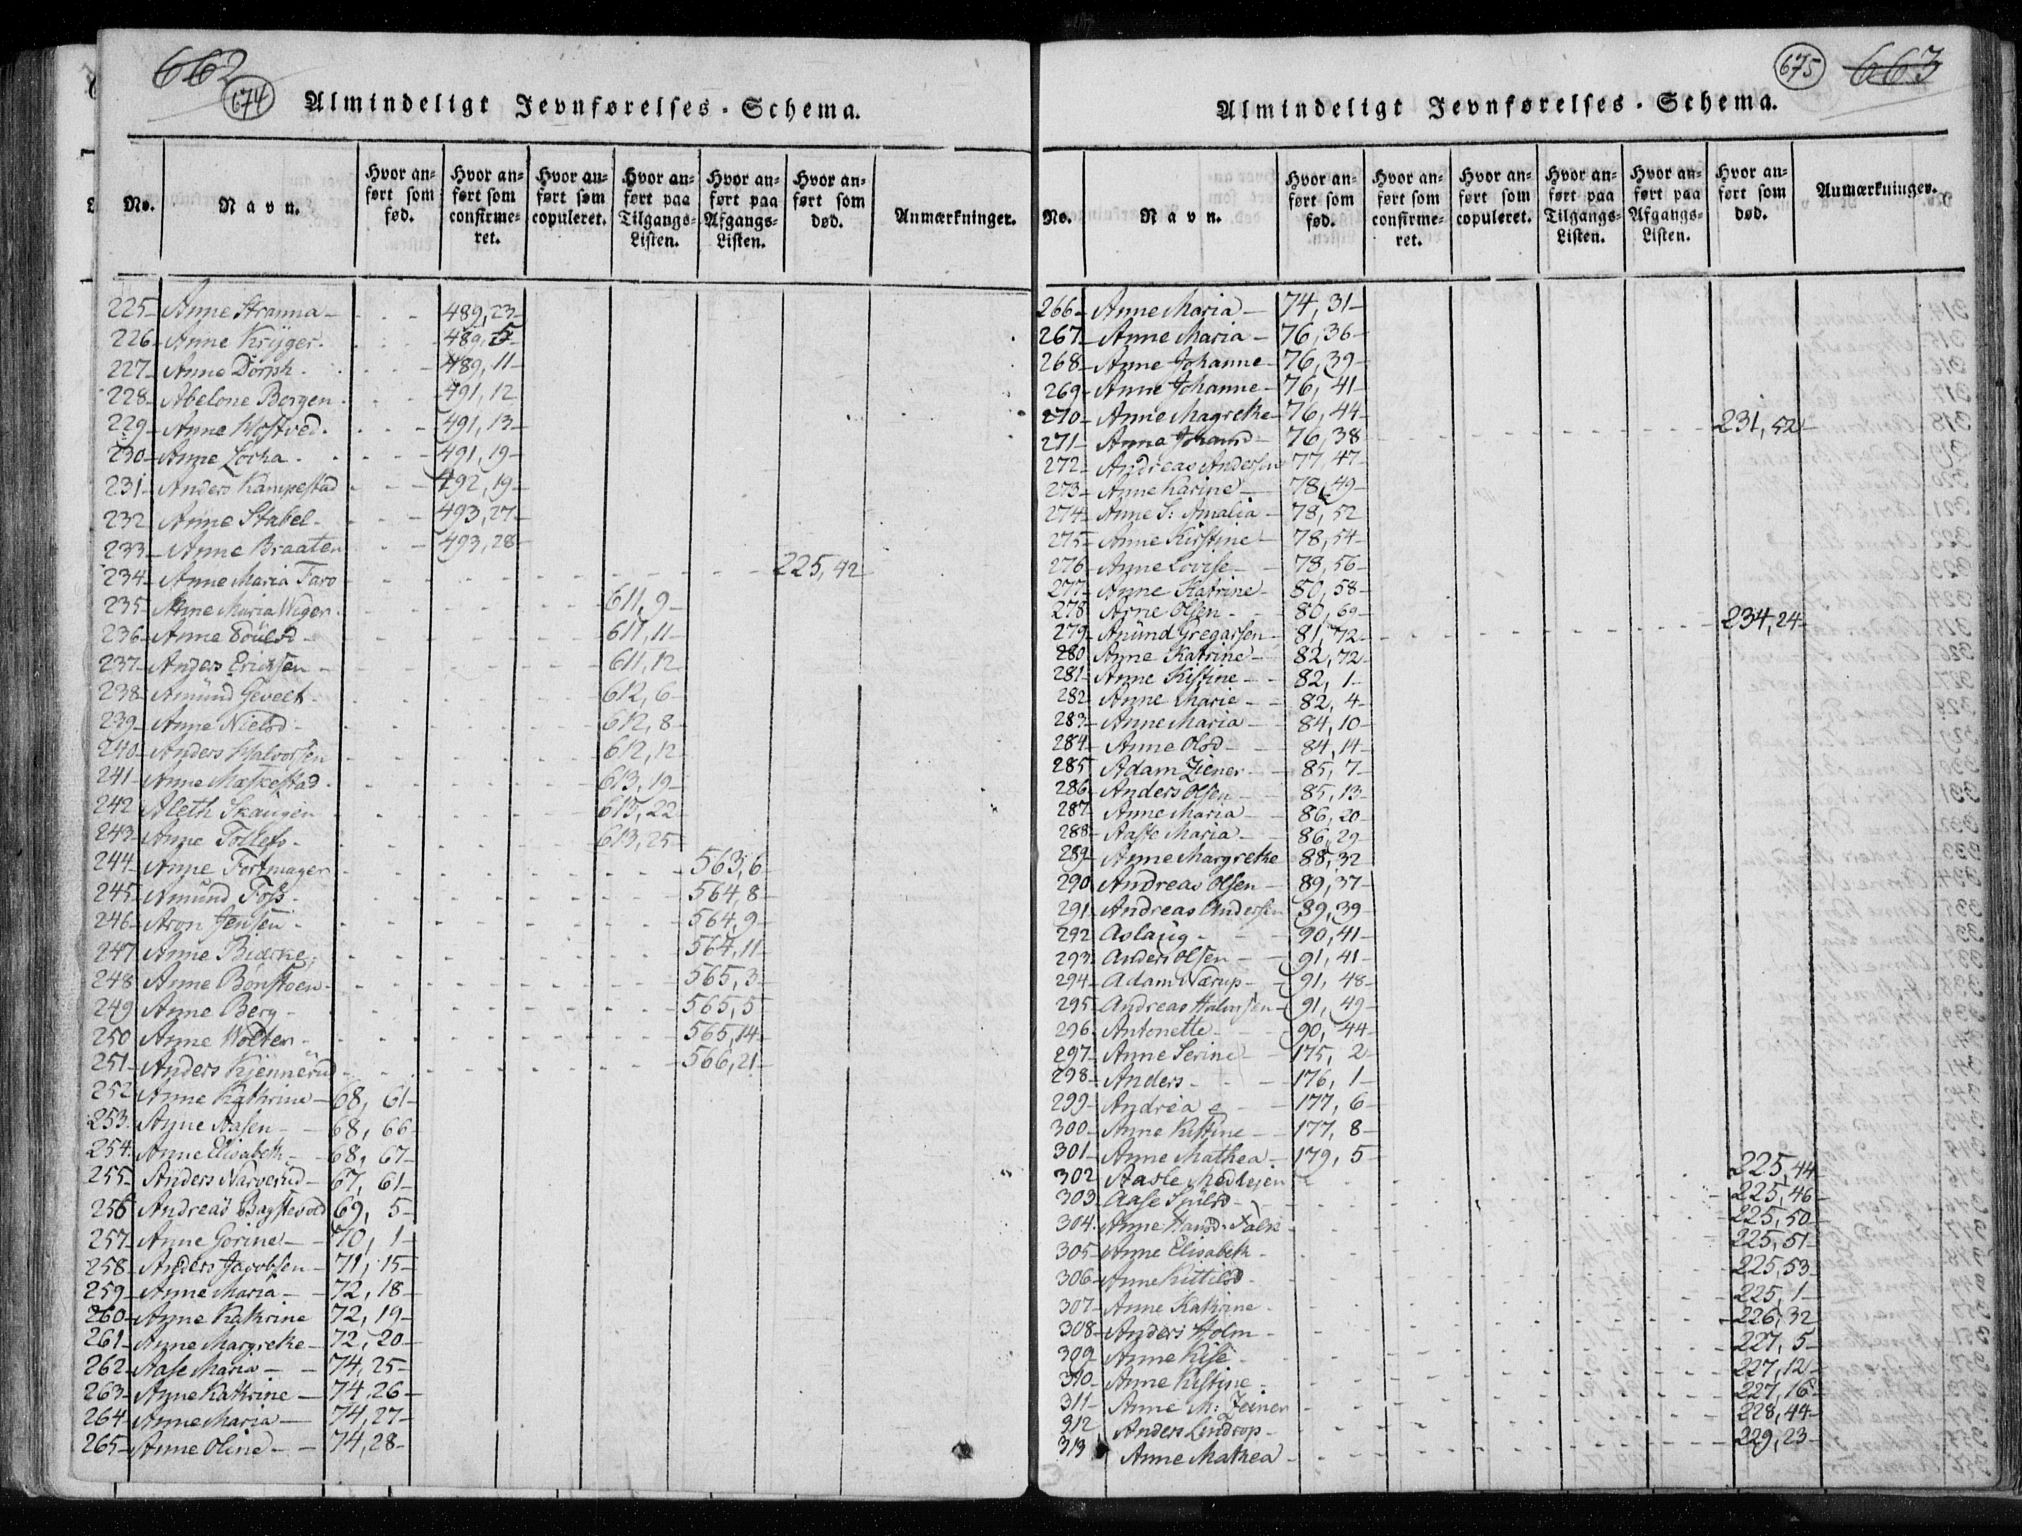 662
674
Almindeligt Jevnførelses-Schema.
No. Navn. Hvor anført som fød. Hvor anført som confirmeret. Hvor anført som copuleret. Hvor anført paa Tilgangs-Listen. Hvor anført paa Afgangs-Listen. Hvor anført som død. Anmærkninger.
225 Anne Stranna 489, 23
226 Anne Krÿger 489, 5
227 Anne Dörph 489, 11
228 Abelone Bergen 491, 12
229 Anne Hostved 491, 13
230 Anne 491, 19
231 Anders Kampestad 492, 19
232 Anne Stabel 493, 27
233 Anne Braaten 493, 28
234 Anne Maria Faro 225, 42
235 Anne Maria Wiger 611, 9
236 Anne Poülsd 611, 11
237 Anders Ericksen 611, 12
238 Amünd Gevelt 612, 6
239 Anne Nielsd 612, 8
240 Anders Halvorsen 612, 12
241 Anne Mæskestad 613, 19
242 Aleth Skaugen 613, 22
243 Anne Tollefs 613, 25
244 Anne Formager 563, 6
245 Amünd Foss 564, 8
246 Aron Jensen 564, 9
247 Anne Bierke 564, 11
248 Anne Bönstoen 565, 3
249 Anne Berg 565, 5
250 Anne Wolter 565, 14
251 Anders Kjennerüd 566, 21
252 Anne Kathrine 68, 61
253 Anne Aasen 68, 66
254 Anne Elisabeth 68, 67
255 Anders Narverüd 67, 61
256 Andreas Bagstevold 69, 5
257 Anne Gorine 70, 1
258 Anders Jacobsen 71, 15
259 Anne Maria 72, 18
260 Anne Kathrine 72, 19
261 Anne Margrethe 72, 20
262 Aase Maria 74, 25
263 Anne Kathrine 74, 26
264 Anne Maria 74, 27
265 Anne Oline 74, 28
675
663
Almindeligt Jevnførelses-Schema.
No. Navn. Hvor anført som fød. Hvor anført som confirmeret. Hvor anført som copuleret. Hvor anført paa Tilgangs-Listen. Hvor anført paa Afgangs-Listen. Hvor anført som død. Anmærkninger.
266 Anne Maria 74, 31
267 Anne Maria 76, 36
268 Anne Johanne 76, 39
269 Anne Johanne 76, 41
270 Anne Magrethe 76, 44
271 Anna Johansd 76, 38 231, 52
272 Andreas Andersen 77, 47
273 Anne Karine 78, 49
274 Anne S: Amalia 78, 52
275 Anne Kirstine 78, 54
276 Anne Lovise 78, 56
277 Anne Katrine 80, 58
278 Arne Olsen 80, 60
279 Anünd Gregarsen 81, 72 234, 24
280 Anne Katrine 82, 72
281 Anne Kistine 82, 1
282 Anne Marie 82, 4
283 Anne Maria 84, 10
284 Anne Olsd 84, 14
285 Adam Ziener 85, 7
286 Anders Olsen 85, 13
287 Anne Maria 86, 20
288 Aaste Maria 86, 29
289 Anne Margrethe 88, 32
290 Andreas Olsen 89, 37
291 Andreas Andersen 89, 39
292 Aslaüg 90, 41
293 Anders Olsen 91, 41
294 Adam Nærup 91, 48
295 Andreas Halvorsen 91, 49
296 Antonette 90, 44
297 Anne Serine 175, 2
298 Anders 176, 1
299 Andrea 177, 6
300 Anne Kistine 177, 8
301 Anne Mathea 179, 5
302 Aasle Medlejen 225, 44
303 Aase 225, 46
304 Anne Hansd: Falk 225, 50
305 Anne Elisabeth 225, 51
306 Anne Kittilsd 225, 53
307 Anne Kathrine 225, 1
308 Anders Holm 226, 32
309 Anne Kise 227, 5
310 Anne Kistine 227, 12
311 Anne M: Zeiner 227, 16
312 Anders Lindrop 228, 44
313 Anne Mathea 229, 23